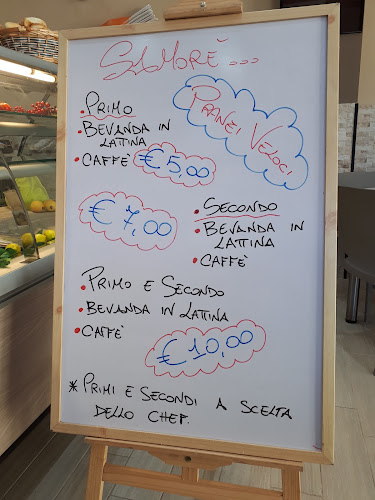 SAMORÈ...
PRANZI VELOCI
• PRIMO
• BEVANDA IN LATTINA
• CAFFÈ € 5,00
€ 7,00
• SECONDO
• BEVANDA IN LATTINA
• CAFFÈ
• PRIMO E SECONDO
• BEVANDA IN LATTINA
• CAFFÈ
€ 10,00
* PRIMI E SECONDI A SCELTA
DELLO CHEF.